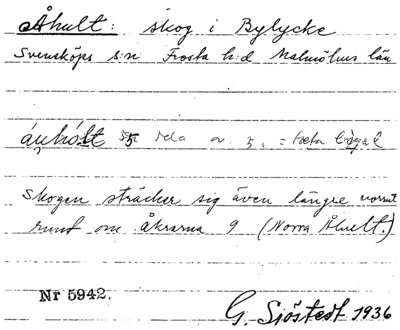 Åhult: skog i Bylycke
Svensköps s:n Frosta h:d Malmöhus län
åuhólt
Skogen sträcker sig även längre norrut
runt om åkrarna 9 (Norra Åhult.)
Nr 5942.
G. Sjöstedt 1936